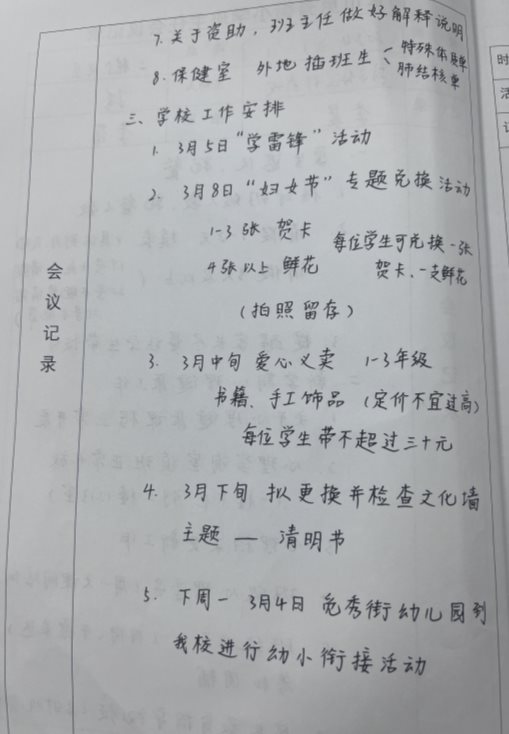 7. 关于资助，班主任做好解释说明
8. 保健室 外地插班生 特殊体质单
肺结核单
三、学校工作安排
1. 3月5日“学雷锋”活动
2. 3月8日“妇女节”专题兑换活动
1-3张 贺卡 每位学生可兑换一张
4张以上 鲜花 贺卡、一支鲜花
（拍照留存）
会议记录
3. 3月中旬 爱心义卖 1-3年级
书籍、手工饰品（定价不宜过高）
每位学生带不超过三十元
4. 3月下旬 拟更换并检查文化墙
主题 — 清明节
5. 下周一 3月4日 兔秀街幼儿园到
我校进行幼小衔接活动
时
活